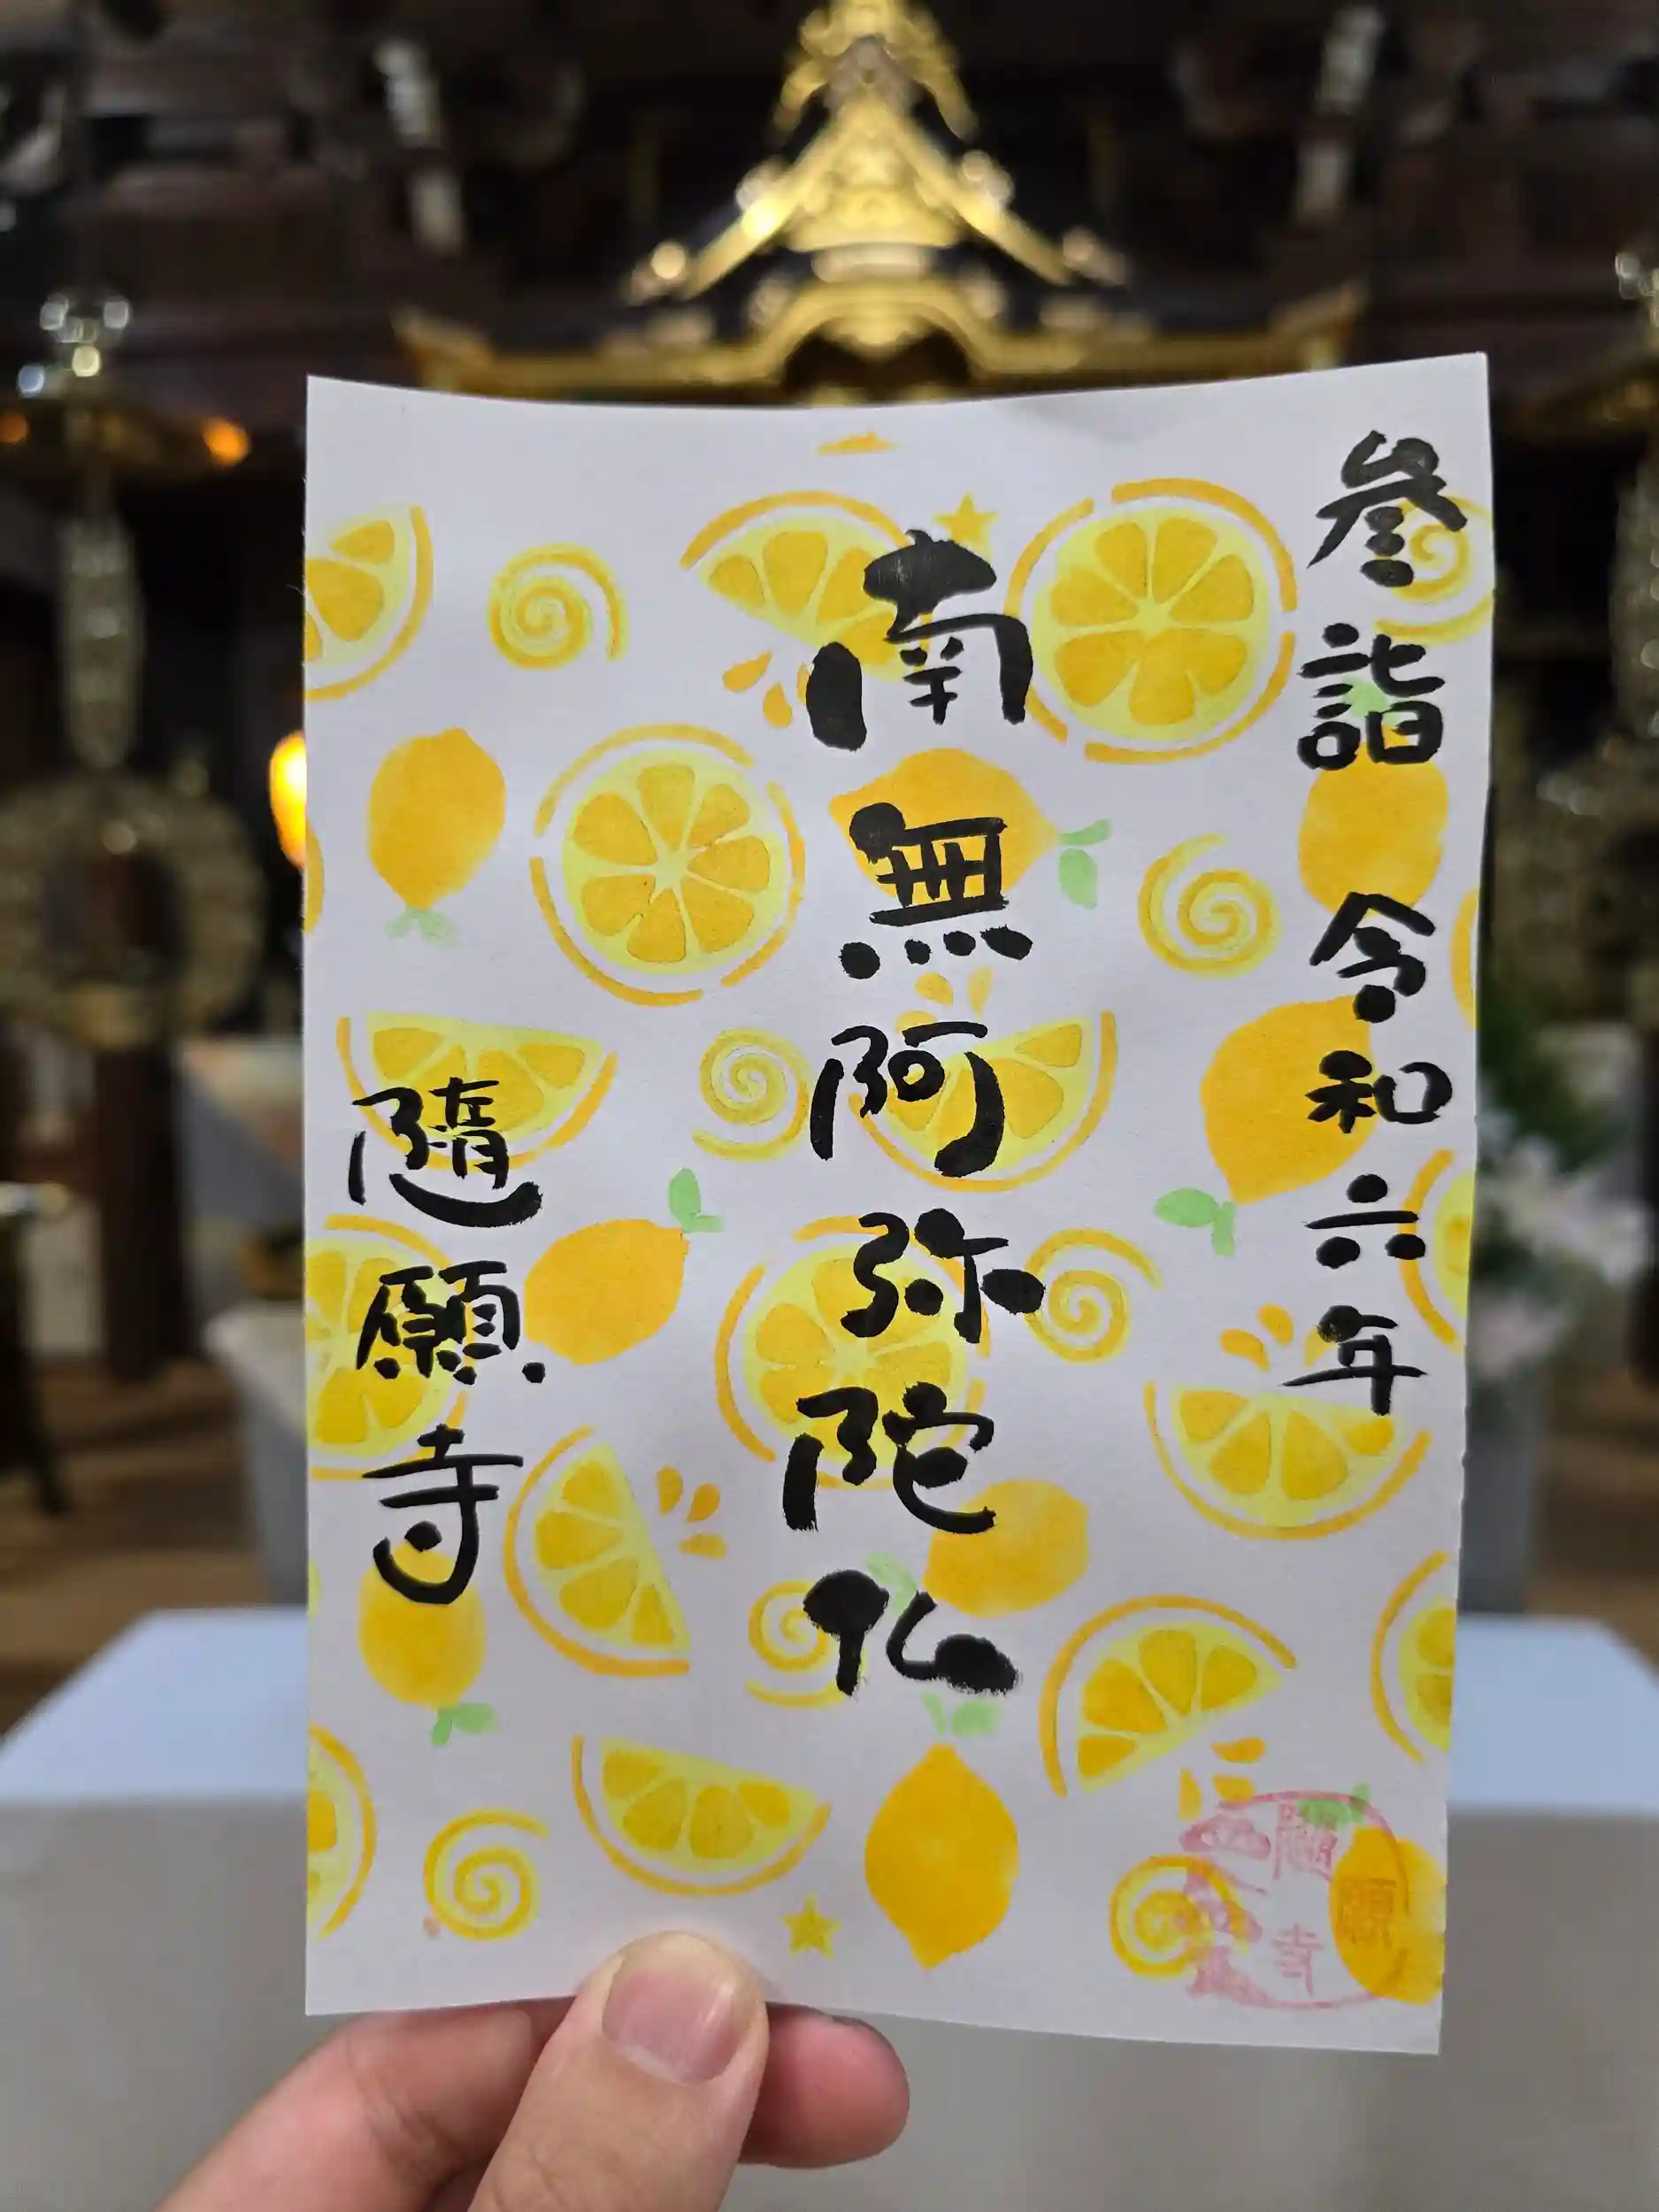 参詣 令和六年
南無阿弥陀仏
隨願寺
隨願寺